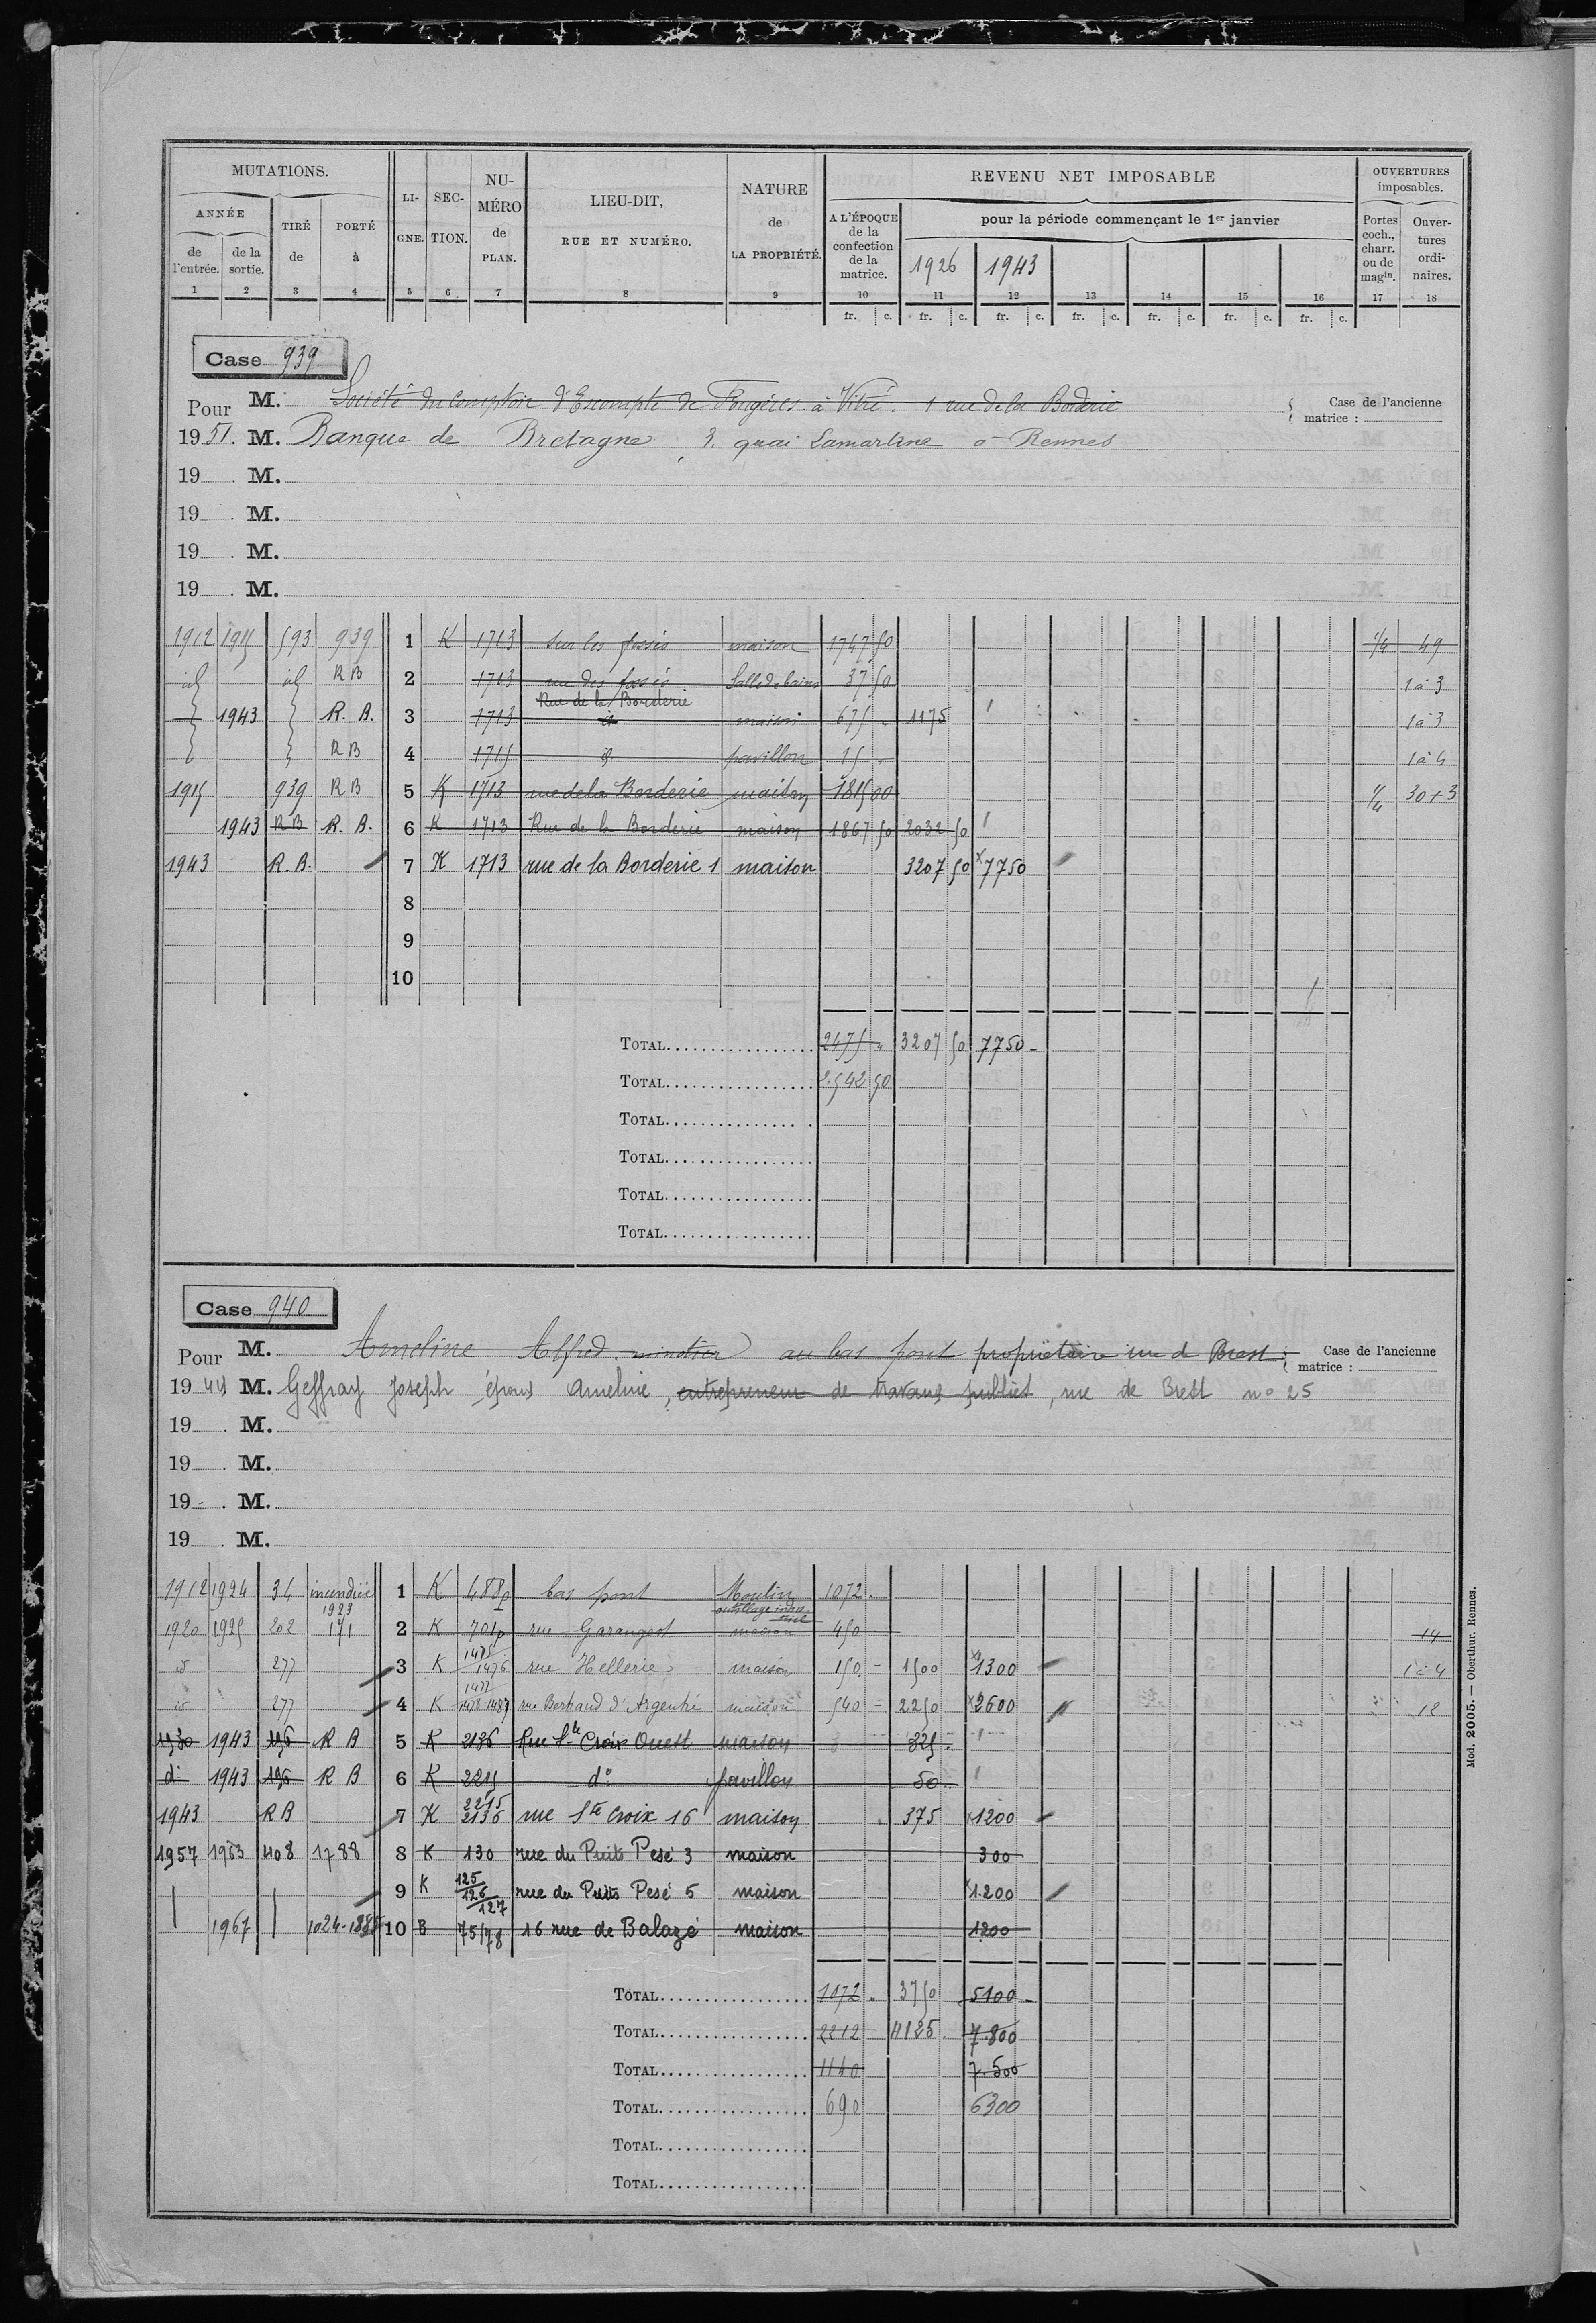 MUTATIONS. LI- GNE. SEC- TION. NU- MÉRO de PLAN. LIEU-DIT, RUE ET NUMÉRO. NATURE de LA PROPRIÉTÉ. REVENU NET IMPOSABLE OUVERTURES imposables.
ANNÉE TIRÉ de PORTÉ à A L'ÉPOQUE de la confection de la matrice. pour la période commençant le 1er janvier Portes coch., charr. ou de magin. Ouver- tures ordi- naires.
de l'entrée. de la sortie. 1926 1943
1 2 3 4 5 6 7 8 9 10 11 12 13 14 15 16 17 18
fr. c. fr. c. fr. c. fr. c. fr. c. fr. c. fr. c.
Case 939
Pour M. Société du Comptoir d'Escompte de Fougères à Vitré. 1 rue de la Borderie Case de l'ancienne matrice :
1951. M. Banque de Bretagne, 3. quai Lamartine à Rennes
19 . M.
19 . M.
19 . M.
19 . M.
1912 1915 593 939 1 K 1713 Sur les fossés maison 1747 50 1/4 49
id id RB 2 1713 rue des fossés Salle de bains 37 50 1 à 3
1943 R. B. 3 1713 Rue de la Borderie id maison 675 1175 1 à 3
RB 4 1715 id pavillon 15 1 à 4
1915 939 RB 5 K 1713 rue de la Borderie maison 1815 00 1/4 30+3
1943 RB R. B. 6 K 1713 Rue de la Borderie maison 1867 50 2032 50
1943 R. B. 7 K 1713 rue de la Borderie 1 maison 3207 50 x7750
8
9
10
TOTAL 2475 3207 50 7750 -
TOTAL 2.542 50
TOTAL
TOTAL
TOTAL
TOTAL
Case 940
Pour M. Ameline Alfred minotier au bas pont propriétaire rue de Brest Case de l'ancienne matrice :
1944 M. Geffray Joseph époux Ameline, entrepreneur de travaux publics, rue de Brest no 25
19 . M.
19 . M.
19 . M.
19 . M.
1912 1924 34 incendié 1923 1 K 488p bas pont Moulin 1072
1920 1925 202 171 2 K 701p rue Garangeot maison 450 14
id 277 3 K 1475 1476 rue Hellerie maison 150 - 1500 x1300 1 à 4
id 277 4 K 1477 1478-1487 rue Bertrand d'Argentré maison 540 - 2250 x2600 12
1930 1943 196 R B 5 K 2136 Rue Ste Croix Ouest maison 325
do 1943 196 R B 6 K 2215 do pavillon 50
1943 RB 7 K 2215 2136 rue Ste Croix 16 maison 375 x1200
1957 1963 408 1788 8 K 130 rue du Puits Pesé 3 maison 300
9 K 125 126 127 rue du Puits Pesé 5 maison x1.200
1967 10 B 75/78 16 rue de Balazé maison 1200
TOTAL 1072 3750 5100 -
TOTAL 2212 4125 7.800
TOTAL 1140 7.500
TOTAL 690 6300
TOTAL
TOTAL
Mod. 2005. — Oberthur. Rennes.